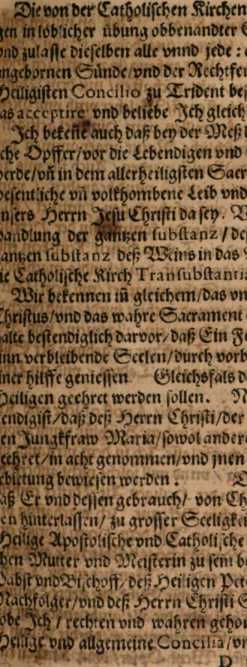 Die von der Catholischen Kirchen
gen in löblicher übung obbenandter
vnd zulasse dieselben alle vnnd jede :
angebornen Sünde/vnd der Rechtfer
Heiligisten Concilio zu Trident bes
as acceptire vnd beliebe Ich gleich
Ich bekeñe auch daß bey der Meß
che Opffer/vor die Lebendigen vnd
werde/vñ in dem allerheiligsten Sacr
wesentliche vñ volkhombene Leib vnd
nsers Herrn Jesu Christi da sey.
wandlung der gantzen substanz/ de
gantzen substanz deß Weins in das
ie Catholische Kirch Transubstantia
Wir bekennen iñ gleichem/das vn
Christus/vnd das wahre Sacrament
alte bestendiglich darvor/daß Ein F
inn verbleibende Seelen/durch vorb
iner hilffe geniessen Gleichsfals d
Heiligen geehret werden sollen. N
endigist/daß deß Herrn Christi/der
en Jungkfraw Maria/sowol andere
eehret/in acht genommen/vnd jnen
erbietung bewiesen werden.
aß Er vnd dessen gebrauch/ von Ch
en hinterlassen/ zu grosser Seeligkei
Heilige Apostolische vnd Catholische
hen Mutter vnd Meisterin zu sein be
Pabst vnd Bischoff/ deß Heiligen Pet
Nachfolger/vnd deß Herrn Christi S
obe Ich/ rechten vnd wahren gehor
Heilige vnd allgemeine Concilia/vn